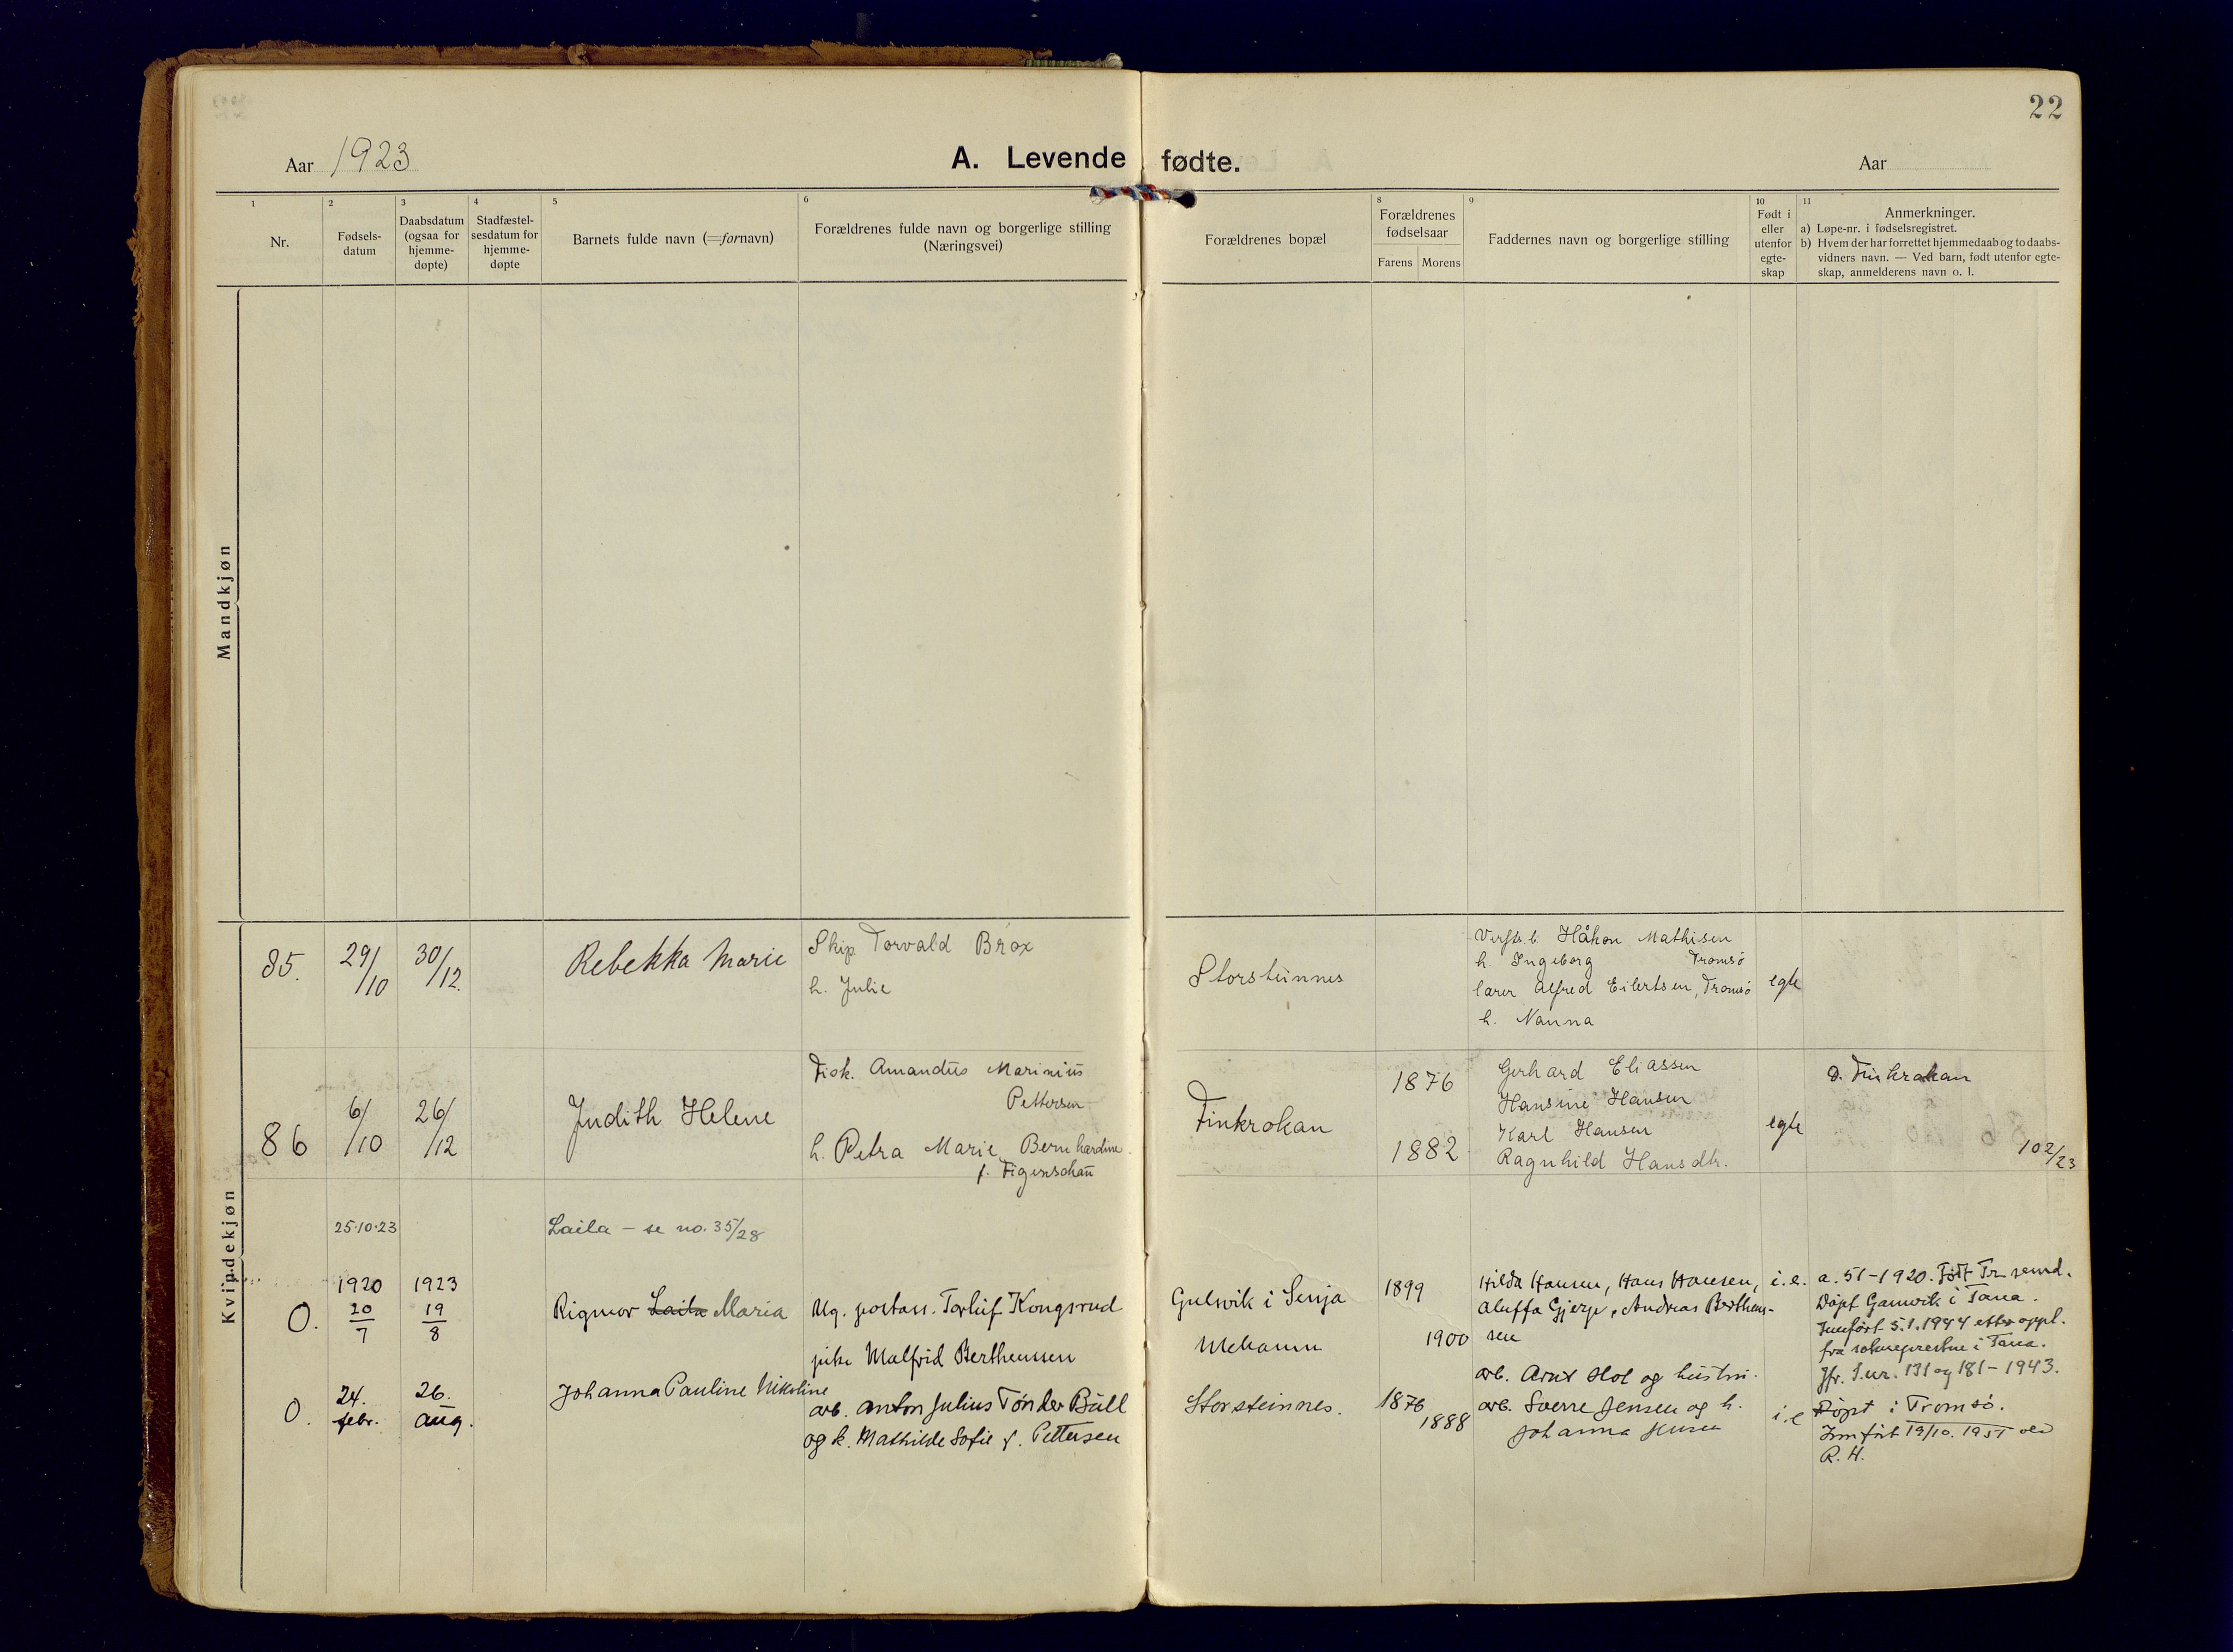 22
Aar 1923
A. Levende fødte.
Aar
1
2
3
4
5
6
8
9
10
11
Nr.
Fødsels-
datum
Daabsdatum
(ogsaa for
hjemme-
døpte)
Stadfæstel-
sesdatum for
hjemme-
døpte
Barnets fulde navn (=fornavn)
Forældrenes fulde navn og borgerlige stilling
(Næringsvei)
Forældrenes bopæl
Forældrenes
fødselsaar
Farens Morens
Faddernes navn og borgerlige stilling
Født i
eller
utenfor
egte-
skap
Anmerkninger.
a) Løpe-nr. i fødselsregistret.
b) Hvem der har forrettet hjemmedaab og to daabs-
vidners navn. — Ved barn, født utenfor egte-
skap, anmelderens navn o. l.
Mandkjøn
Kvindekjøn
85. 29/10 30/12. Rebekka Marie
Skip. Torvald Brox
h. Julie
Storsteinnes
Håkon Mathisen
h. Ingeborg Tromsø
lærer Alfred Eilertsen, Tromsø
h. Nanna
egte
86 6/10 26/12 Judith Helene
Fisk. Amandus Marinius
Pettersen
h. Petra Marie Bernhardine
f. Figenschau
Finkrokan
1876
1882
Gerhard Eliassen
Hansine Hansen
Karl Hansen
Ragnhild Hansdtr.
egte
D. Finkrokan
102/23
25.10.23 Laila – se no. 35/28
0. 1920 20/7 1923 19/8 Rigmor Laila Maria
Ug. postass. Torleif Kongsrud
pike Malfrid Bertheussen
Gulsvik i Senja
Mehamn
1899
1900
Hilda Hansen, Hans Hansen,
Aluffa Gjerp, Andreas Bertheus-
sen
i.e.
a. 51-1920. Født Tr.
Døpt Gamvik i Tana.
Innført 5.1.1944 etter oppl.
fra sokneprestene i Tana.
Jfr. J.nr. 131 og 181-1943.
0. 24. febr. 26. aug. Johanna Pauline Nikoline
arb. Anton Julius Tønder Bull
og h. Mathilde Sofie f. Pettersen
Storsteinnes.
1876
1888
arb. Arnt Hol og hustru.
arb. Sverre Jensen og h.
Johanna Jensen
i.e
Døpt i Tromsø.
Innført 19/10. 1951 ved
R. H.